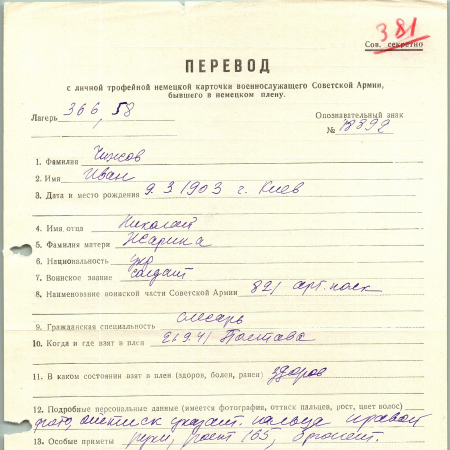 381
Сов. секретно
ПЕРЕВОД
с личной трофейной немецкой карточки военнослужащего Советской Армии,
бывшего в немецком плену.
Лагерь 366, 58
Опознавательный знак
№ 18392
1. Фамилия Чижов
2. Имя Иван
3. Дата и место рождения 9.3 1903 г. Киев
4. Имя отца Николай
5. Фамилия матери
6. Национальность укр
7. Воинское звание солдат
8. Наименование воинской части Советской Армии 821 арт. полк
9. Гражданская специальность слесарь
10. Когда и где взят в плен 21.9.41 Полтава
11. В каком состоянии взят в плен (здоров, болен, ранен) здоров
12. Подробные персональные данные (имеется фотография, оттиск пальцев, рост, цвет волос)
фото, оттиск указат. пальца правой
13. Особые приметы руки, рост 165, брюнет.